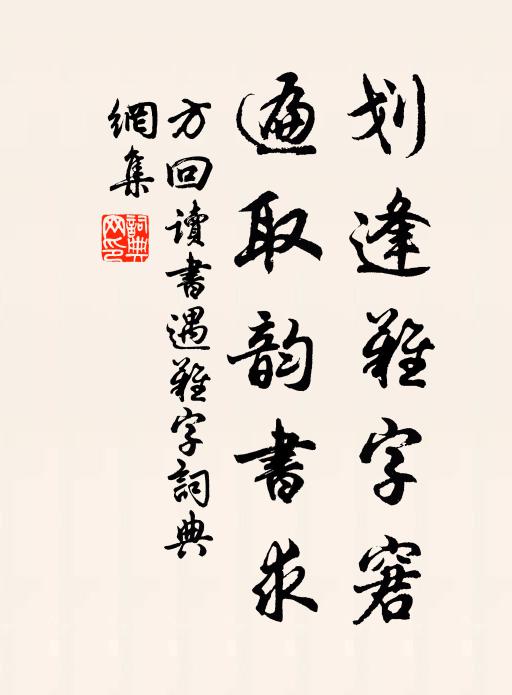 划逢難字窘
遍取韵書求
方回讀書遇難字詞典
網集
詞典網印